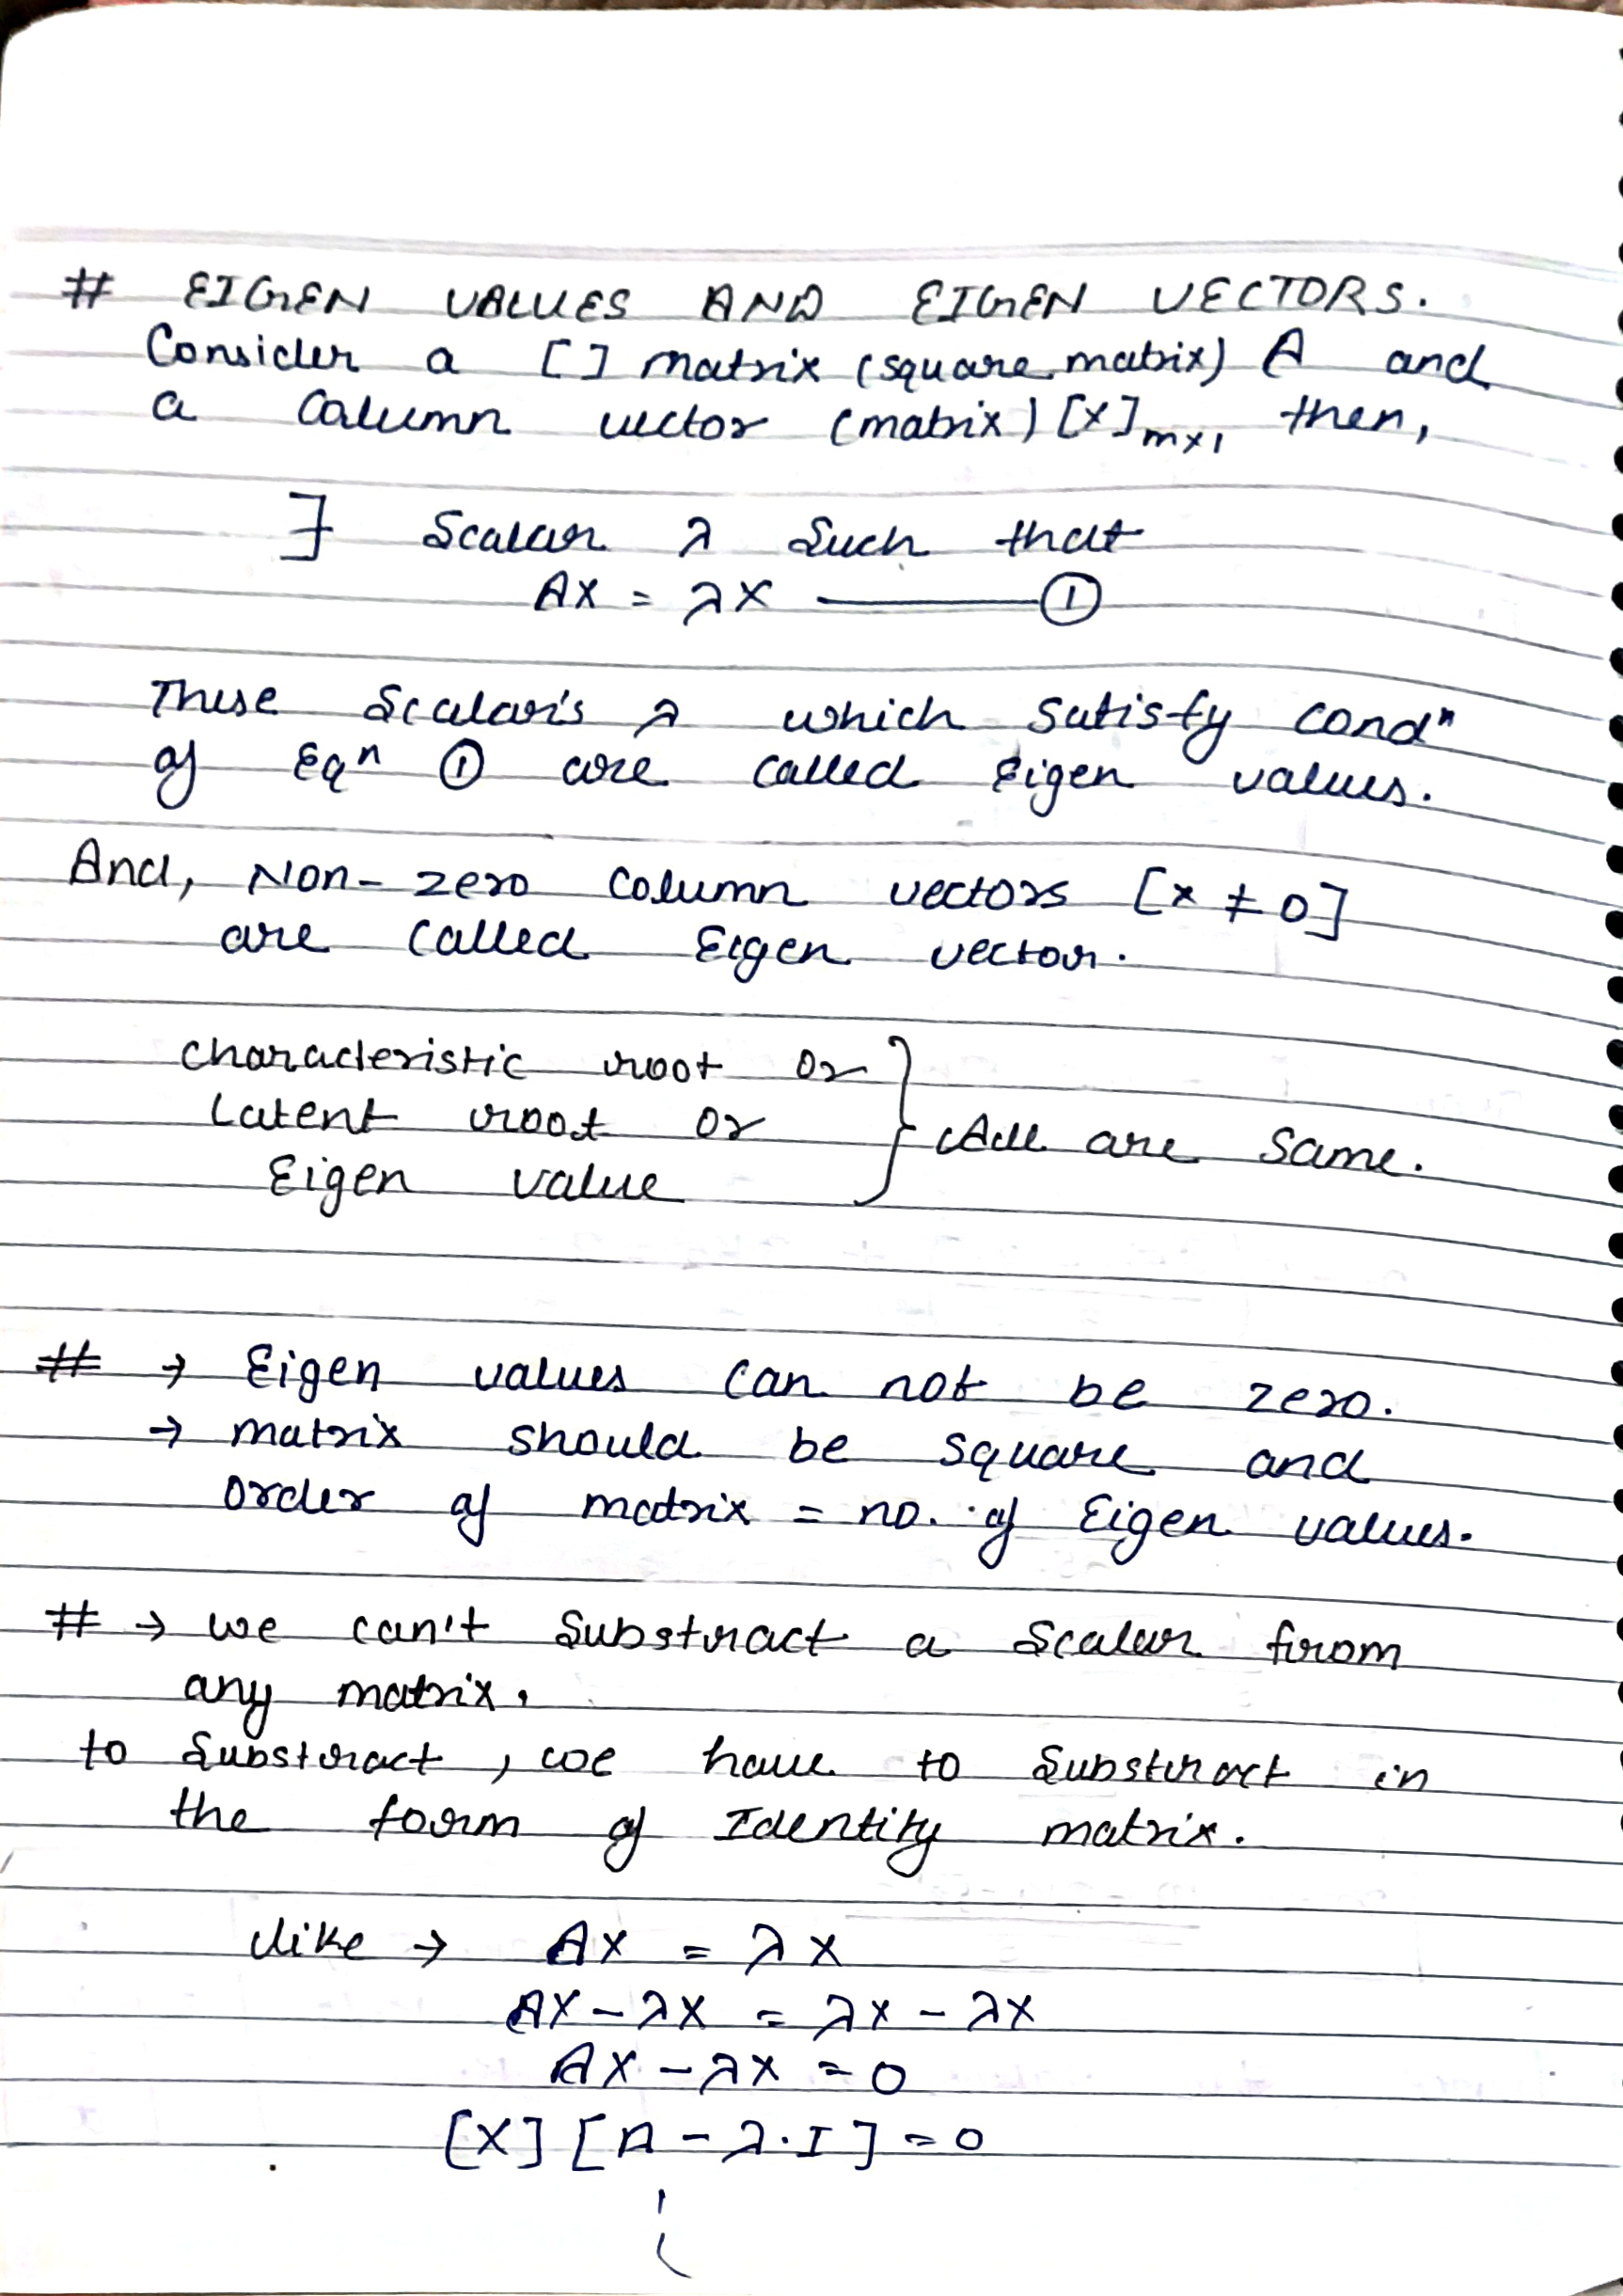 # EIGEN VALUES AND EIGEN VECTORS.
Consider a [ ] matrix (square matrix) A and
a Column vector (matrix) [X]m×1 then,
∃ Scalar λ Such that
AX = λX ——— ①
These Scalar's λ which satisfy condⁿ
of Eqⁿ ① are called Eigen values.
And, Non-zero Column vectors [x ≠ 0]
are called Eigen vector.
Characteristic root or
Latent root or } All are Same.
Eigen value
# → Eigen values can not be zero.
→ matrix should be square and
Order of matrix = no. of Eigen values.
# → we can't Substract a Scalar from
any matrix.
to Substract, we have to Substract in
the form of Identity matrix.
like → AX = λX
AX – λX = λX – λX
AX – λX = 0
[X] [A – λ·I] = 0